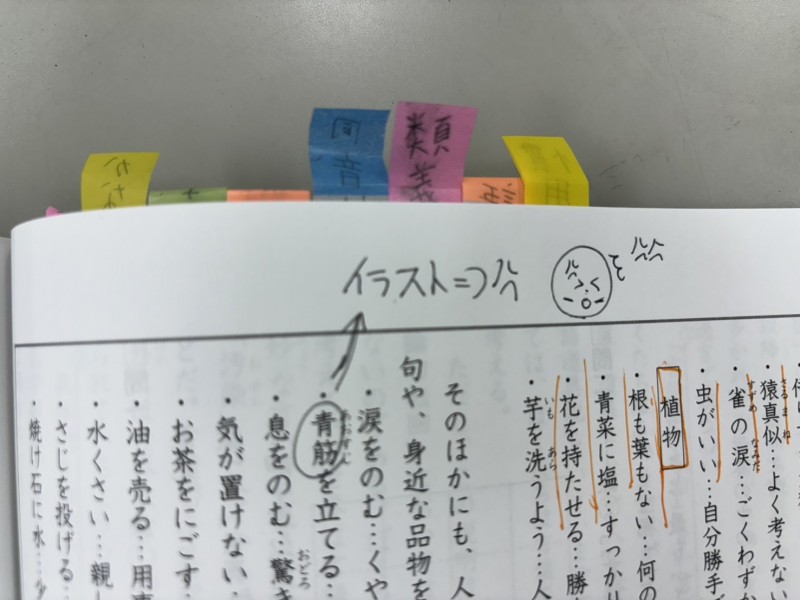 かな
同音
類義
用
イラスト=つ
・猿真似…よく考えない
さるまね
・雀の涙…ごくわずか
すずめ なみだ
・虫がいい…自分勝手
植物
・根も葉もない…何の
・青菜に塩…すっかり
・花を持たせる…勝
・芋を洗うよう…人
いも あら
そのほかにも、人
句や、身近な品物を
・涙をのむ…くや
・青筋を立てる…
あおすじ
・息をのむ…驚き
おどろ
・気が置けない
・お茶をにごす…
・油を売る…用事
・水くさい…親し
・さじを投げる…
・焼け石に水…少